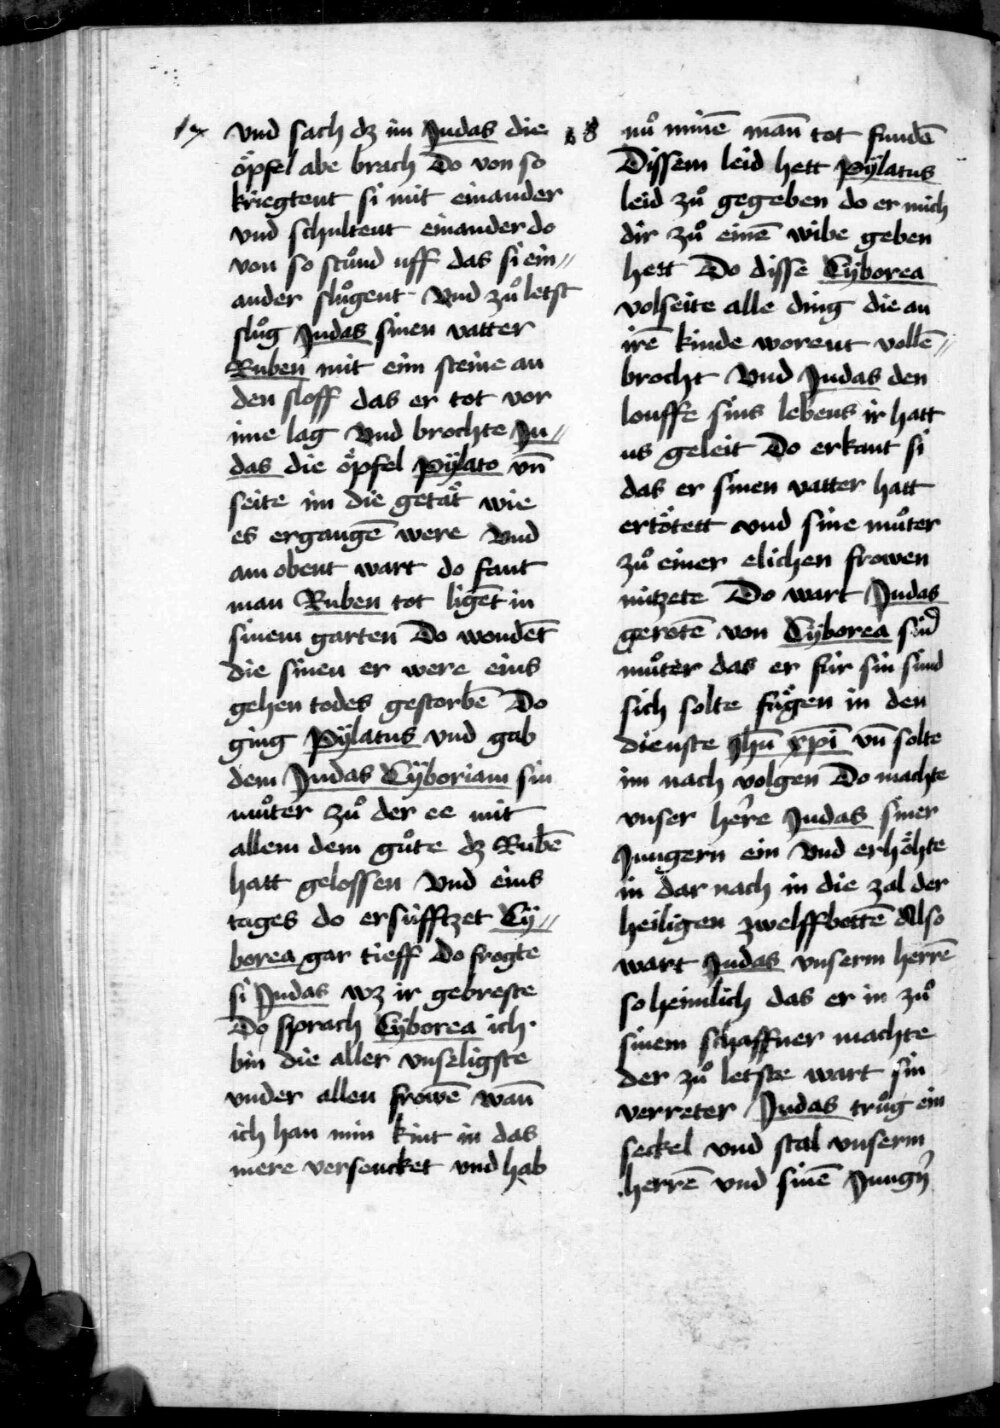 17
vnd sach dz im Judas die
öpfel abe brach Do von so
kriegtent si mit einander
vnd schultent einander do
von so stůnd uff das si ein//
ander slůgent Vnd zů letst
slůg Judas sinen vatter
Ruben mit eim steine an
den sloff das er tot vor
ime lag Vnd brochte Ju//
das die öpfel Pÿlato vn̄
seite im die getät wie
es ergangē were Vnd
am obent wart do fant
man Ruben tot ligēt in
sinem garten Do wondēt
die sinen er were eins
gehen todes gestorbē Do
ging Pÿlatus vnd gab
dem Judas Cÿboriam sin
můter zů der ee mit
allem dem gůte dz Rubē
hatt gelossen Vnd eins
tages do ersúfftzet Cÿ//
borea gar tieff Do frogte
si Judas wz ir gebreste
Do sprach Cÿborea ich
bin die aller vnseligste
vnder allen frowē wan̄
ich han min kint in das
mere versencket vnd hab
18
nů minē man̄ tot fundē
Dissem leid hett Pÿlatus
leid zů gegeben do er mich
dir zů einē wibe geben
hett Do disse Cÿborea
volseite alle ding die an
irē kinde worent vollē//
brocht Vnd Judas den
louffe sins lebens ir hatt
us geleit Do erkant si
das er sinen vatter hatt
ertötett vnd sine můter
zů einer elichen frowen
nützete Do wart Judas
gerotē von Cÿborea sin̾
můter das er für sin sünd
sich solte fügen in den
dienste Jhū xp̄i vn̄ solte
im nach volgen Do machte
vnser her̄e Judas siner
Jungern ein Vnd erhöhte
in dar nach in die zal der
heiligen zwelffbottē Also
wart Judas vnserm herrē
so heimlich das er in zů
sinem schaffner machte
der zů letste wart sin
verreter Judas trůg ein
seckel vnd stal vnserm
herrē vnd sinē Jungn̾